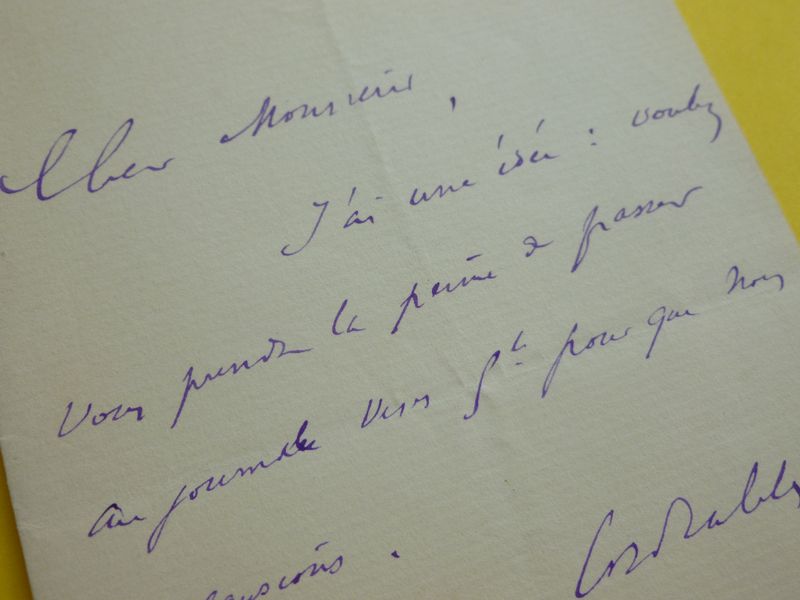 Cher Monsieur,
J'ai une idée : voulez
vous prendre la peine de passer
au journal vers 5h pour que nous
causions.
Cordiales